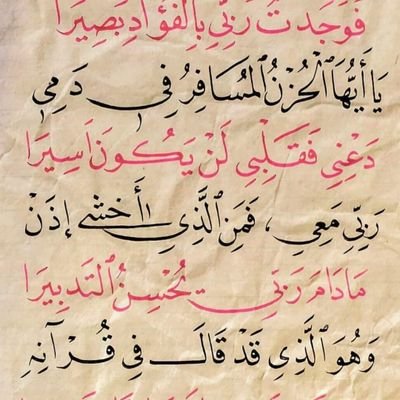 فَوَجَدْتُ رَبِّي بِالْفُؤَادِ بَصِيرَا
يَا أَيُّهَا الْحُزْنُ الْمُسَافِرُ فِي دَمِي
دَعْنِي فَقَلْبِي لَنْ يَكُونَ اَسِيرَا
رَبِّي مَعِي ، فَمَنِ الَّذِي أَخْشَى إِذَنْ
مَادَامَ رَبِّي يُحْسِنُ التَّدبِيرَا
وَهُوَ الَّذِي قَدْ قَالَ فِي قُرْآنِهِ